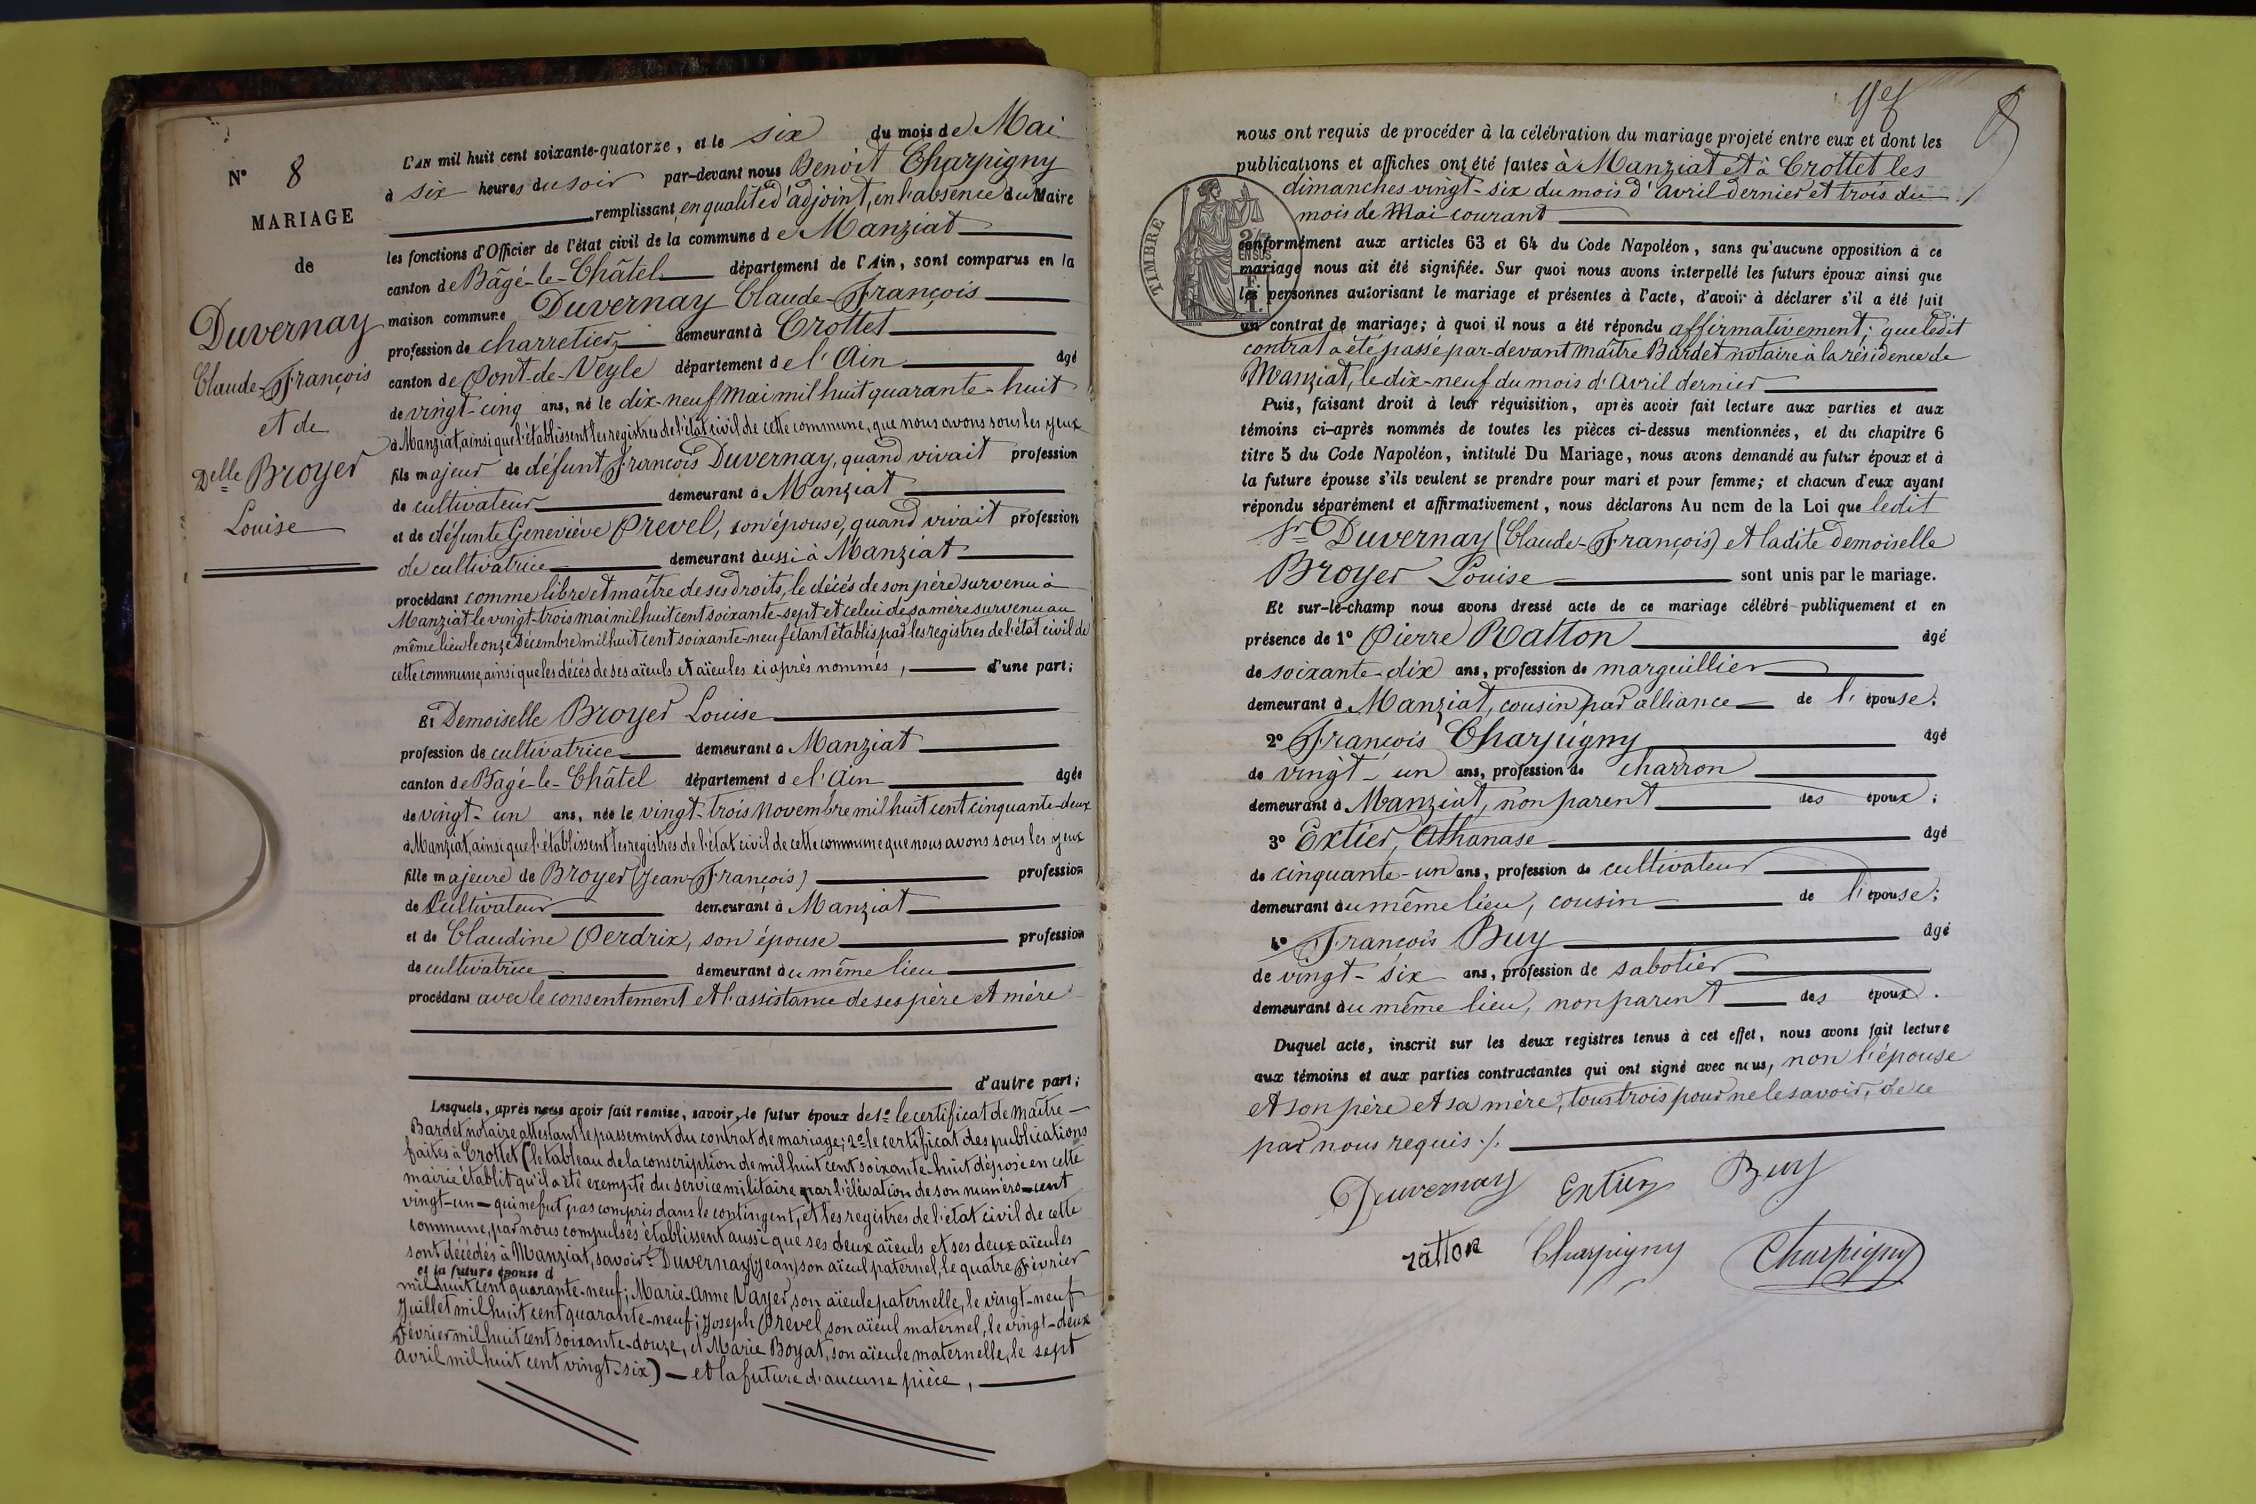 N° 8
MARIAGE
de
Duvernay
Claude-François
et de
Delle Broyer
Louise
L'AN mil huit cent soixante-quatorze, et le six du mois de Mai
à six heures du soir par-devant nous Benoît Charpigny
remplissant, en qualité d'adjoint, en l'absence du Maire
les fonctions d'Officier de l'état civil de la commune de Manziat
canton de Bâgé-le-Châtel département de l'Ain, sont comparus en la
maison commune Duvernay Claude-François
profession de charretier, demeurant à Crottet
canton de Pont-de-Veyle département de l'Ain âgé
de vingt-cinq ans, né le dix-neuf Mai mil huit quarante-huit
à Manziat, ainsi que l'établissent les registres de l'état civil de cette commune, que nous avons sous les yeux
fils majeur de défunt François Duvernay, quand vivait profession
de cultivateur demeurant à Manziat
et de défunte Geneviève Prevel, son épouse, quand vivait profession
de cultivatrice demeurant aussi à Manziat
procédant comme libre et maître de ses droits, le décès de son père survenu à
Manziat le vingt-trois mai mil huit cent soixante-sept et celui de sa mère survenu au
même lieu le onze Décembre mil huit cent soixante-neuf étant établis par les registres de l'état civil de
cette commune, ainsi que les décès de ses aïeuls et aïeules ci après nommés, d'une part;
Et Demoiselle Broyer Louise
profession de cultivatrice demeurant à Manziat
canton de Bâgé-le-Châtel département de l'Ain âgée
de vingt-un ans, née le vingt-trois Novembre mil huit cent cinquante-deux
à Manziat, ainsi que l'établissent les registres de l'état civil de cette commune que nous avons sous les yeux
fille majeure de Broyer (Jean-François) profession
de Cultivateur demeurant à Manziat
et de Claudine Perdrix, son épouse profession
de cultivatrice demeurant au même lieu
procédant avec le consentement et l'assistance de ses père et mère
d'autre part;
Lesquels, après nous avoir fait remise, savoir, le futur époux de 1° le certificat de Maître
Bardet notaire attestant le passement du contrat de mariage; 2° le certificat des publications
faites à Crottet (le tableau de la conscription de mil huit cent soixante-huit déposé en cette
mairie établit qu'il a été exempté du service militaire par l'élévation de son numéro - cent
vingt-un - qui ne fut pas compris dans le contingent, et les registres de l'état civil de cette
commune, par nous compulsés établissent aussi que ses deux aïeuls et ses deux aïeules
sont décédés à Manziat, savoir: Duvernay (Jean) son aïeul paternel, le quatre Février
et la future épouse d
mil huit cent quarante-neuf; Marie-Anne Vayer, son aïeule paternelle, le vingt-neuf
Juillet mil huit cent quarante-neuf; Joseph Prevel, son aïeul maternel, le vingt-deux
Février mil huit cent soixante-douze, et Marie Boyat, son aïeule maternelle, le sept
avril mil huit cent vingt-six) - et la future d'aucune pièce,
8
nous ont requis de procéder à la célébration du mariage projeté entre eux et dont les
publications et affiches ont été faites à Manziat et à Crottet les
dimanches vingt-six du mois d'Avril dernier et trois du
mois de Mai courant
TIMBRE
2/10
EN SUS
1 F.
conformément aux articles 63 et 64 du Code Napoléon, sans qu'aucune opposition à ce
mariage nous ait été signifiée. Sur quoi nous avons interpellé les futurs époux ainsi que
les personnes autorisant le mariage et présentes à l'acte, d'avoir à déclarer s'il a été fait
un contrat de mariage; à quoi il nous a été répondu affirmativement; que ledit
contrat a été passé par-devant Maître Bardet notaire à la résidence de
Manziat, le dix-neuf du mois d'Avril dernier
Puis, faisant droit à leur réquisition, après avoir fait lecture aux parties et aux
témoins ci-après nommés de toutes les pièces ci-dessus mentionnées, et du chapitre 6
titre 5 du Code Napoléon, intitulé Du Mariage, nous avons demandé au futur époux et à
la future épouse s'ils veulent se prendre pour mari et pour femme; et chacun d'eux ayant
répondu séparément et affirmativement, nous déclarons Au nom de la Loi que ledit
Sr Duvernay (Claude-François) et ladite demoiselle
Broyer Louise sont unis par le mariage.
Et sur-le-champ nous avons dressé acte de ce mariage célébré publiquement et en
présence de 1° Pierre Ratton âgé
de soixante-dix ans, profession de marguillier
demeurant à Manziat, cousin par alliance de l'épouse;
2° François Charpigny âgé
de vingt-un ans, profession de charron
demeurant à Manziat, non parent des époux;
3° Extier, Athanase âgé
de cinquante-un ans, profession de cultivateur
demeurant au même lieu, cousin de l'épouse;
4° François Buy âgé
de vingt-six ans, profession de sabotier
demeurant au même lieu, non parent des époux.
Duquel acte, inscrit sur les deux registres tenus à cet effet, nous avons fait lecture
aux témoins et aux parties contractantes qui ont signé avec nous, non l'épouse
et son père et sa mère, tous trois pour ne le savoir, de ce
par nous requis ./.
Duvernay Extier Buy
ratton Charpigny Charpigny